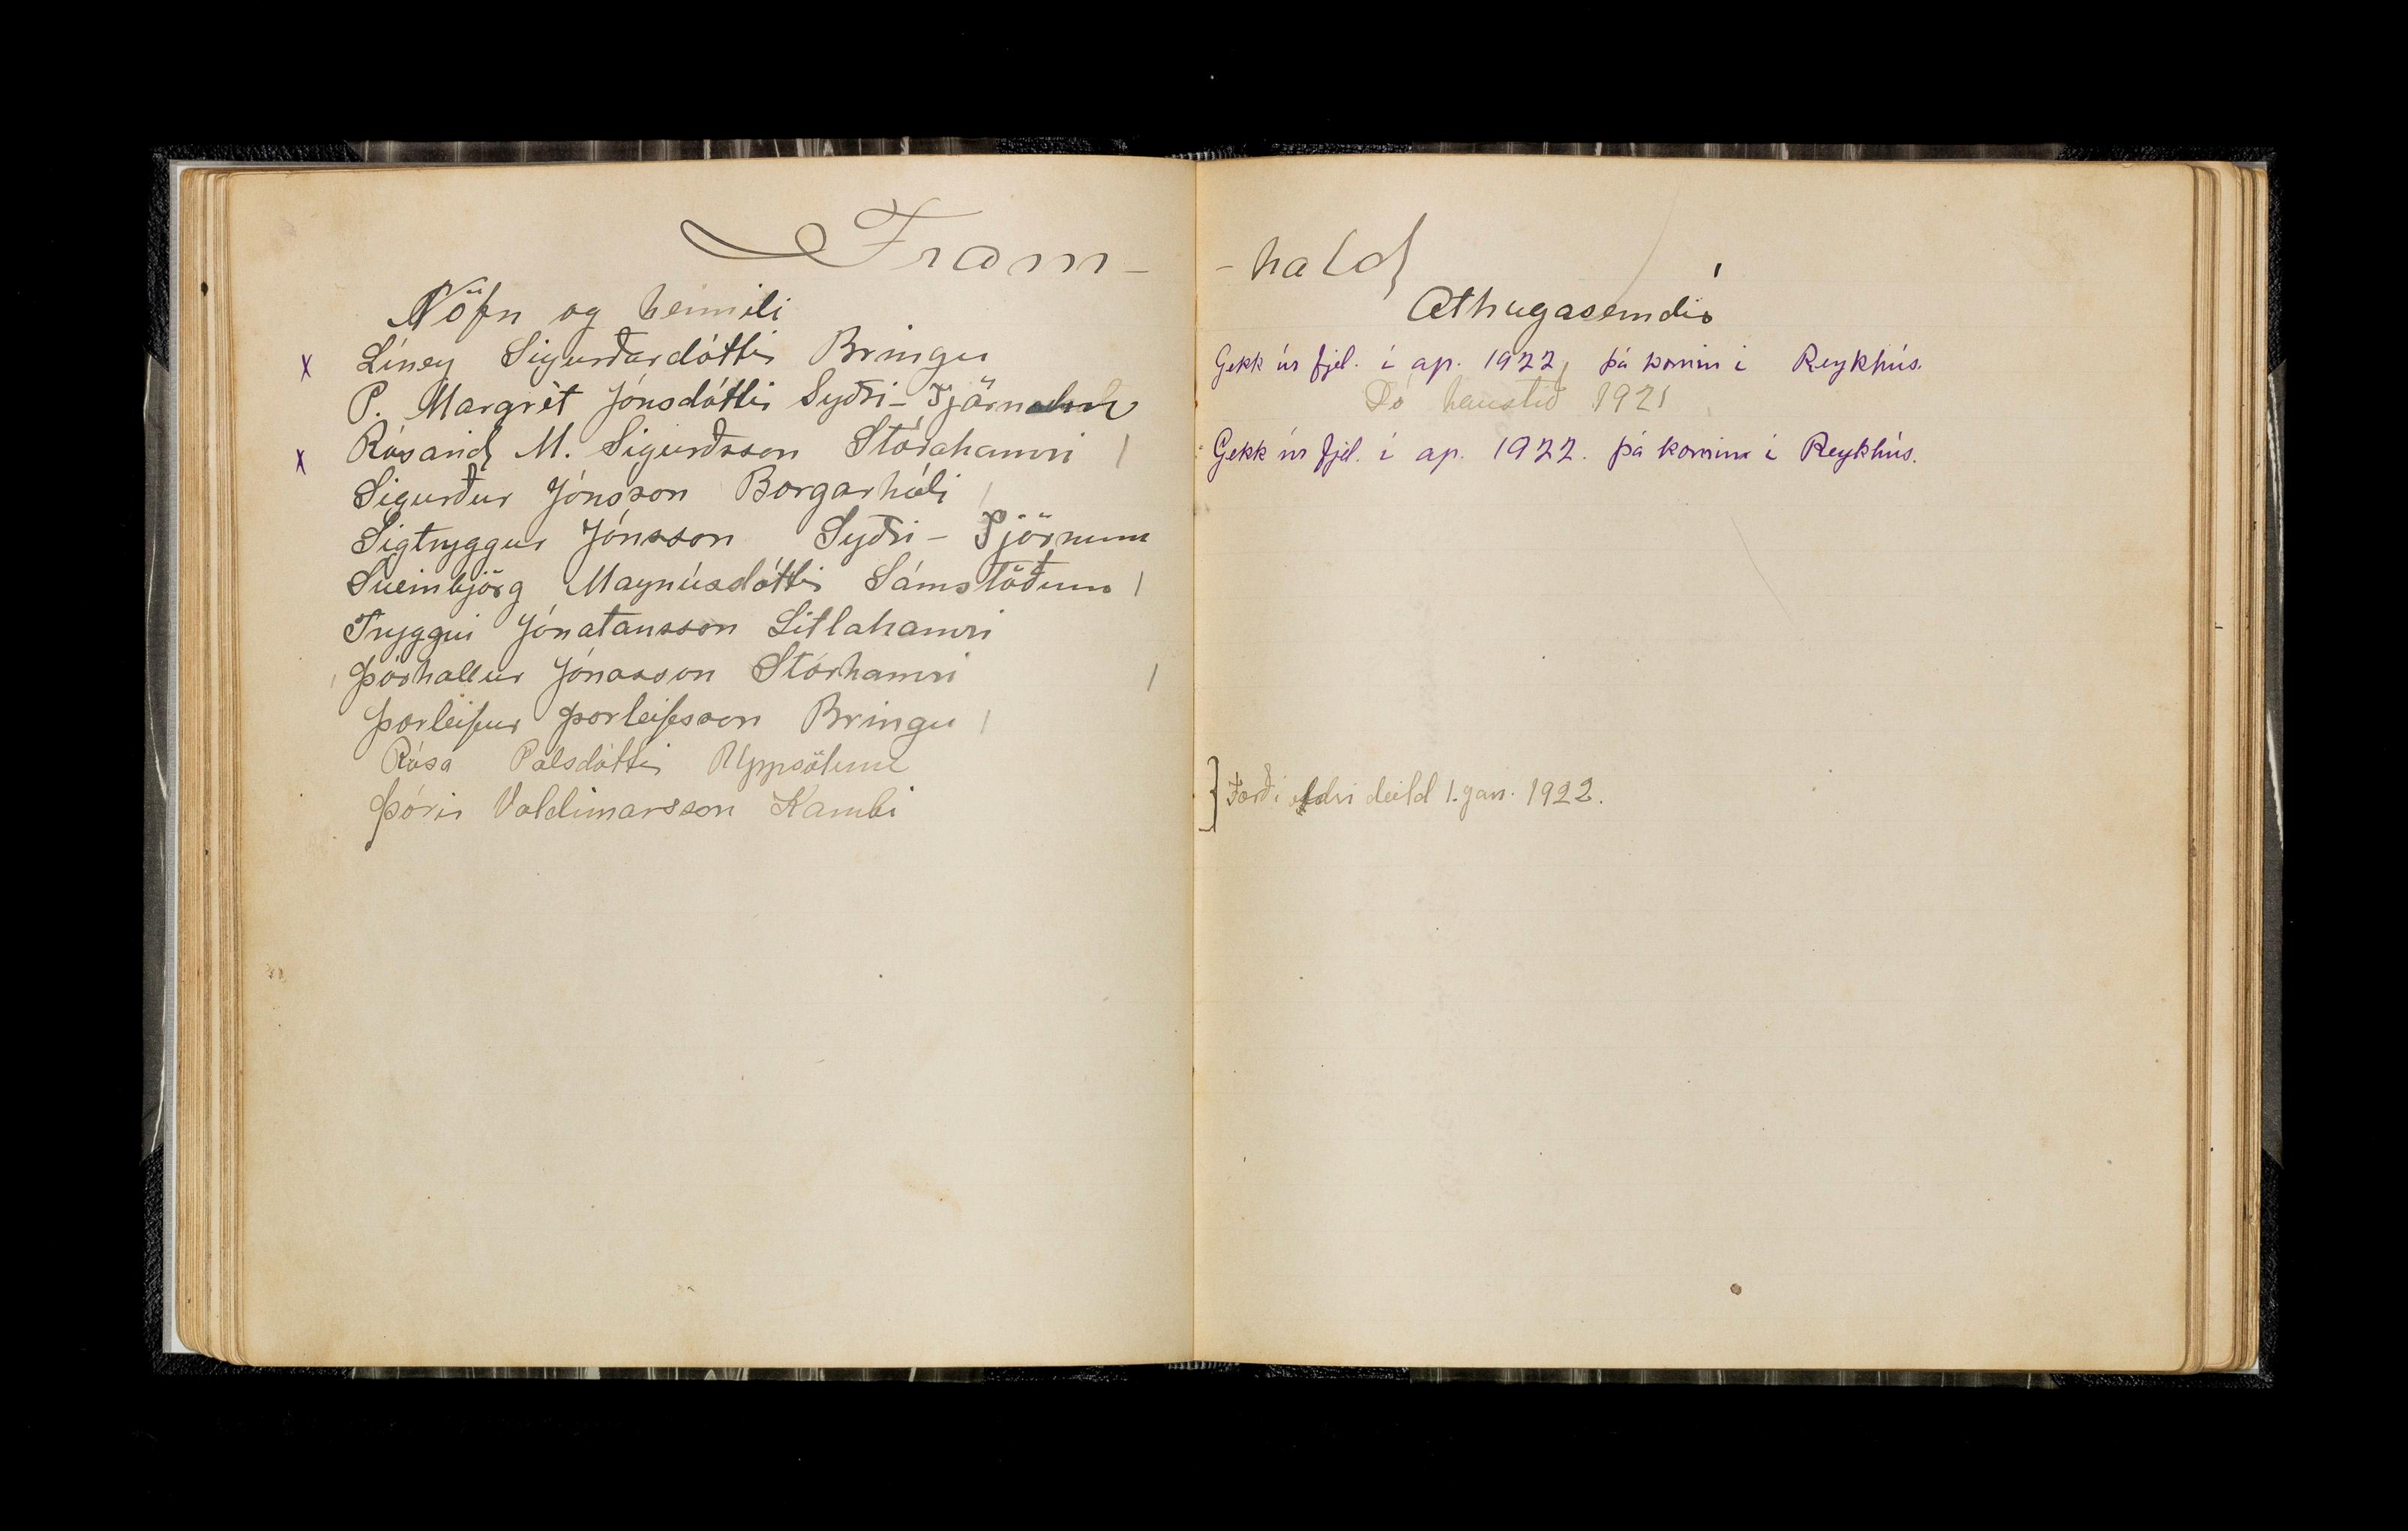 Fram-
Nöfn og heimili
x Líney Sigurðardóttir Bringu
P. Margrét Jónsdóttir Syðri-Tjörnum
x Rósant M. Sigurðsson Stórahamri
Sigurður Jónsson Borgarhóli
Sigtryggur Jónsson Syðri-Tjörnum
Sveinbjörg Magnúsdóttir Sámstöðum
Tryggvi Jónatansson Litlahamri
Þórhallur Jónasson Stórhamri
Þorleifur Þorleifsson Bringu
Rósa Pálsdóttir Uppsölum
Þórir Valdimarsson Kambi
-hald
Athugasemdir
Gekk úr fjel. í ap. 1922, þá komin í Reykhús.
Dó haustið 1921
Gekk úr fjel. í ap. 1922. þá kominn í Reykhús.
} Færð í eldri deild 1. jan. 1922.